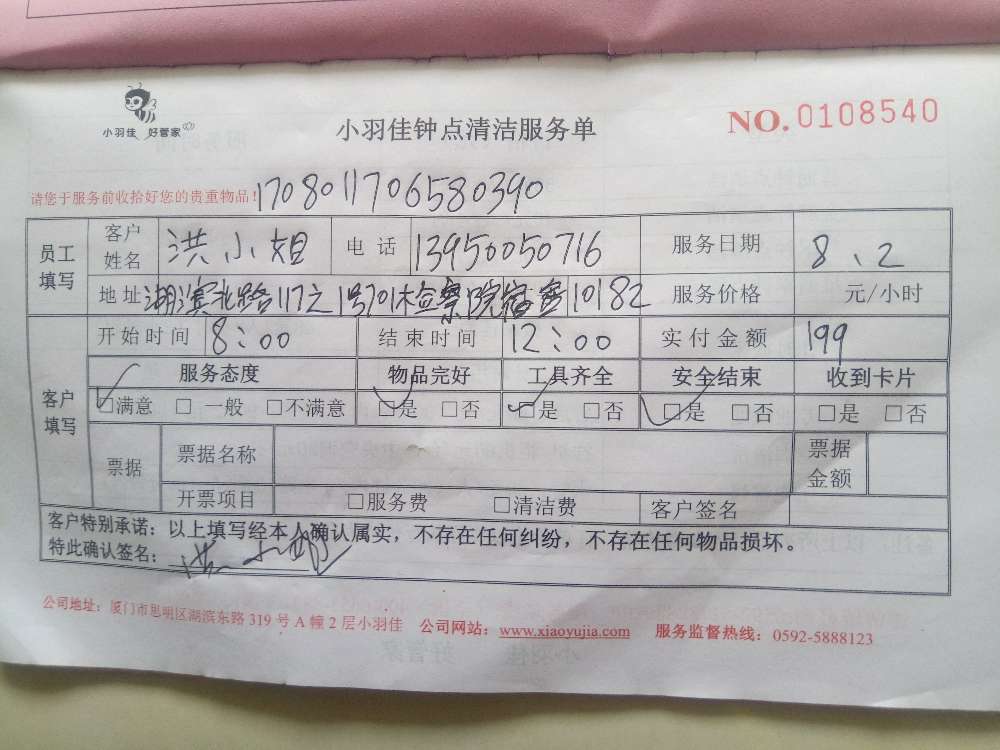 小羽佳 好管家
小羽佳钟点清洁服务单
NO. 0108540
请您于服务前收拾好您的贵重物品! 1708011706580390
员工填写 客户姓名 洪小姐 电话 13950050716 服务日期 8、2
地址 湖滨北路117之1号701检察院宿舍10182 服务价格 元/小时
客户填写 开始时间 8:00 结束时间 12:00 实付金额 199
服务态度 物品完好 工具齐全 安全结束 收到卡片
☑满意 □一般 □不满意 ☑是 □否 ☑是 □否 ☑是 □否 □是 □否
票据 票据名称 票据金额
开票项目 □服务费 □清洁费 客户签名
客户特别承诺:以上填写经本人确认属实,不存在任何纠纷,不存在任何物品损坏。
特此确认签名:
公司地址:厦门市思明区湖滨东路 319 号 A 幢 2 层小羽佳 公司网站:www.xiaoyujia.com 服务监督热线:0592-5888123